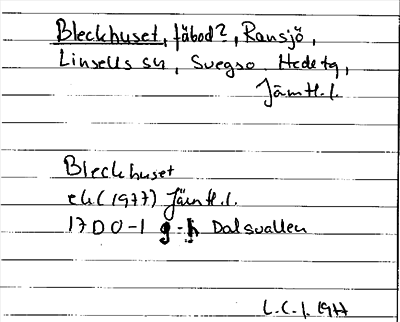 Bleckhuset, fäbod?, Ransjö,
Linsells sn, Svegso. Hede tg,
Jämtl.l.
Bleckhuset
ek.(1977) Jämtl.l.
17D 0-1 g-h Dalsvallen
L.C.J. 1977